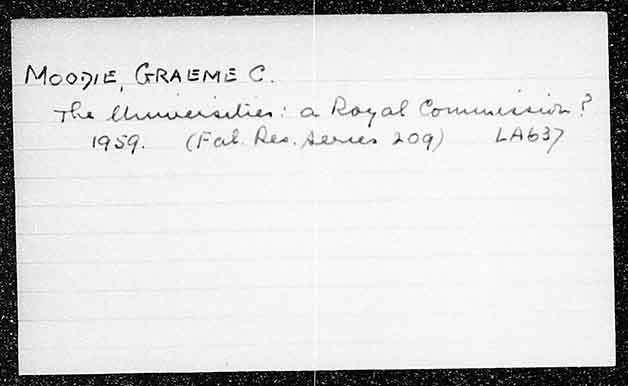 MOODIE, GRAEME C.
The Universities: a Royal Commission?
1959. (Fab. Res. Series 209) LA637